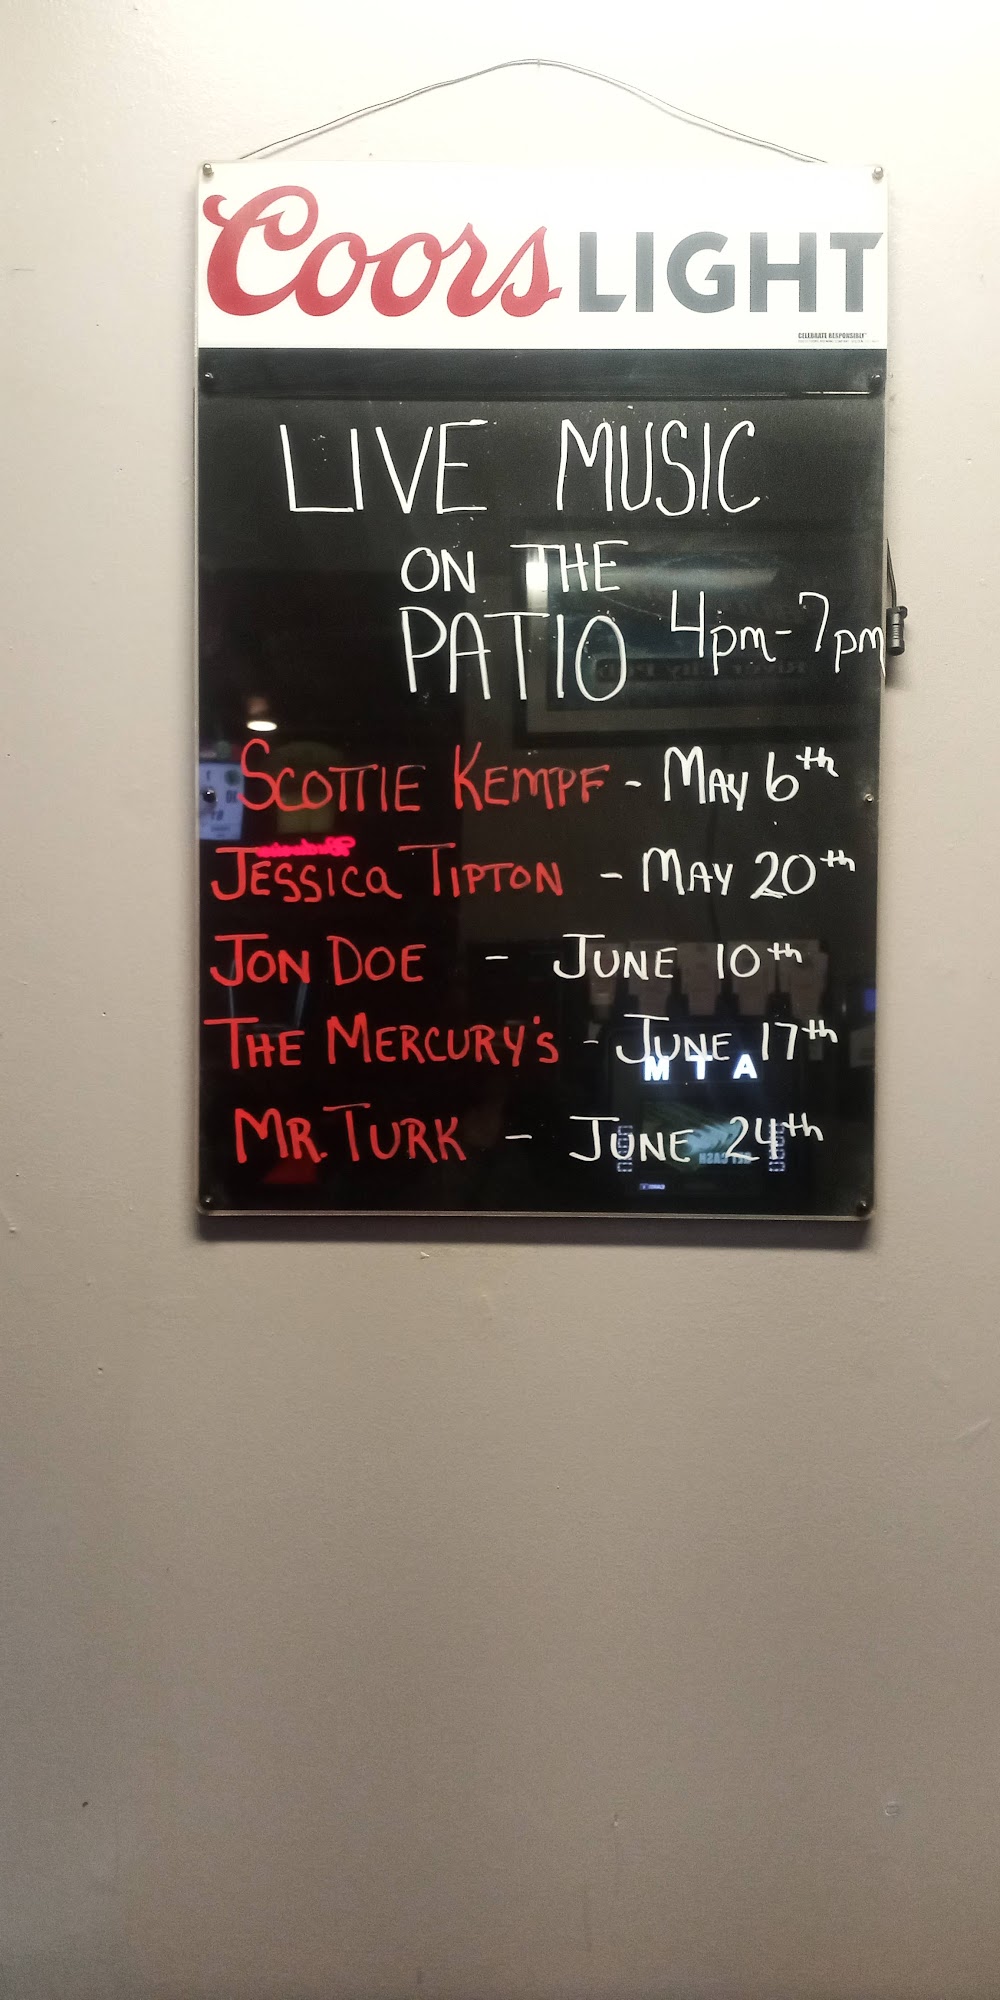 Coors LIGHT
CELEBRATE RESPONSIBLY
LIVE MUSIC
ON THE
PATIO 4pm-7pm
SCOTTIE KEMPF - MAY 6th
JESSICA TIPTON - MAY 20th
JON DOE - JUNE 10th
THE MERCURY'S - JUNE 17th
MR. TURK - JUNE 24th